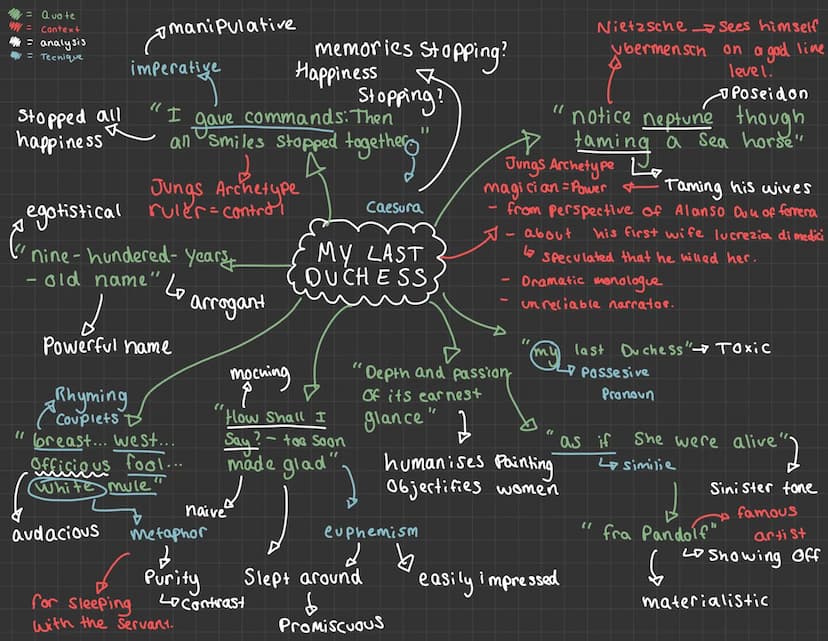 = Quote
= Context
= analysis
= Tecnique
manipulative
imperative
"I gave commands: Then
all smiles stopped together."
Stopped all
happiness
Jungs Archetype
ruler = control
Caesura
memories stopping?
Happiness
Stopping?
Nietzsche → Sees himself
ubermensch on a god line
level.
Poseidon
"notice neptune though
taming a sea horse"
Taming his wives
Jungs Archetype
magician = Power
- from perspective of Alonso Duk of ferrera
- about his first wife lucrezia di medici
↳ speculated that he killed her.
- Dramatic monologue
- unreliable narrator.
MY LAST
DUCHESS
egotistical
"nine-hundered-years
- old name"
arrogant
Powerful name
"my last Duchess" → Toxic
Possesive
Pronoun
"Depth and passion
of its earnest
glance"
humanises Painting
Objectifies women
"as if she were alive"
similie
Sinister tone
"fra Pandolf"
famous
artist
Showing off
materialistic
mocking
"How shall I
say? - too soon
made glad"
naive
euphemism
Slept around
Promiscuous
easily impressed
Rhyming
Couplets
"breast... west...
officious fool...
white mule"
audacious
metaphor
Purity
↳ Contrast
for sleeping
with the servant.